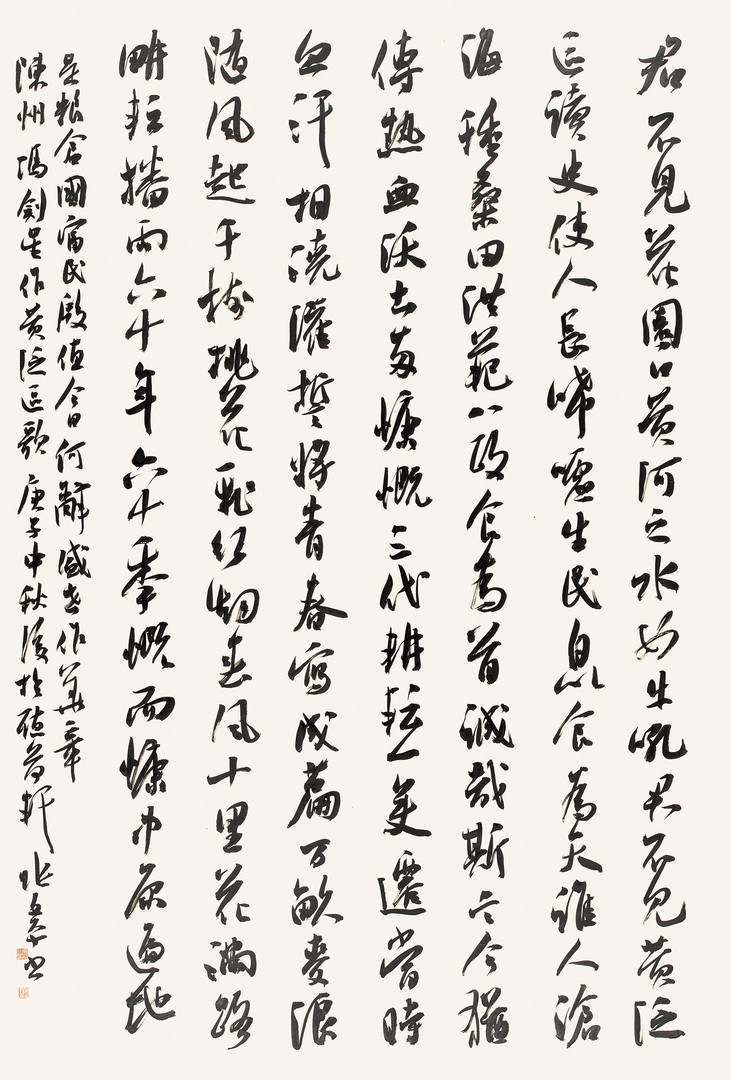 君不見花園口黃河之水如牛吼君不見黃泛
區讀史使人長唏噓生民自以食為天誰人滄
海種桑田洪範八政食為首誠哉斯言今猶
傳熱血沃土慷慨三代耕耘一遷當時
血汗相澆灌誓將青春寫成篇万畝麥浪
隨風起千樹桃花飛紅春風十里花滿路
畊耘播雨六十年六十季慨而慷中原遍地
是粮倉國富民殷值今日何辭盛世作華章
陳州馮劍星作黃泛區歌庚子中秋後於軒书